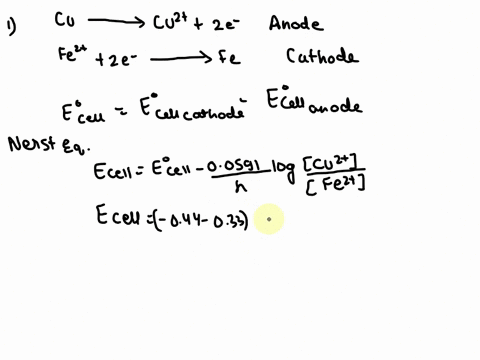 1) Cu ⟶ Cu²⁺ + 2e⁻ Anode
Fe²⁺ + 2e⁻ ⟶ Fe Cathode
E°cell = E°cell cathode - E°cell anode
Nerst Eq.
Ecell = E°cell - 0.0591/n log [Cu²⁺]/[Fe²⁺]
Ecell = (-0.44-0.33)